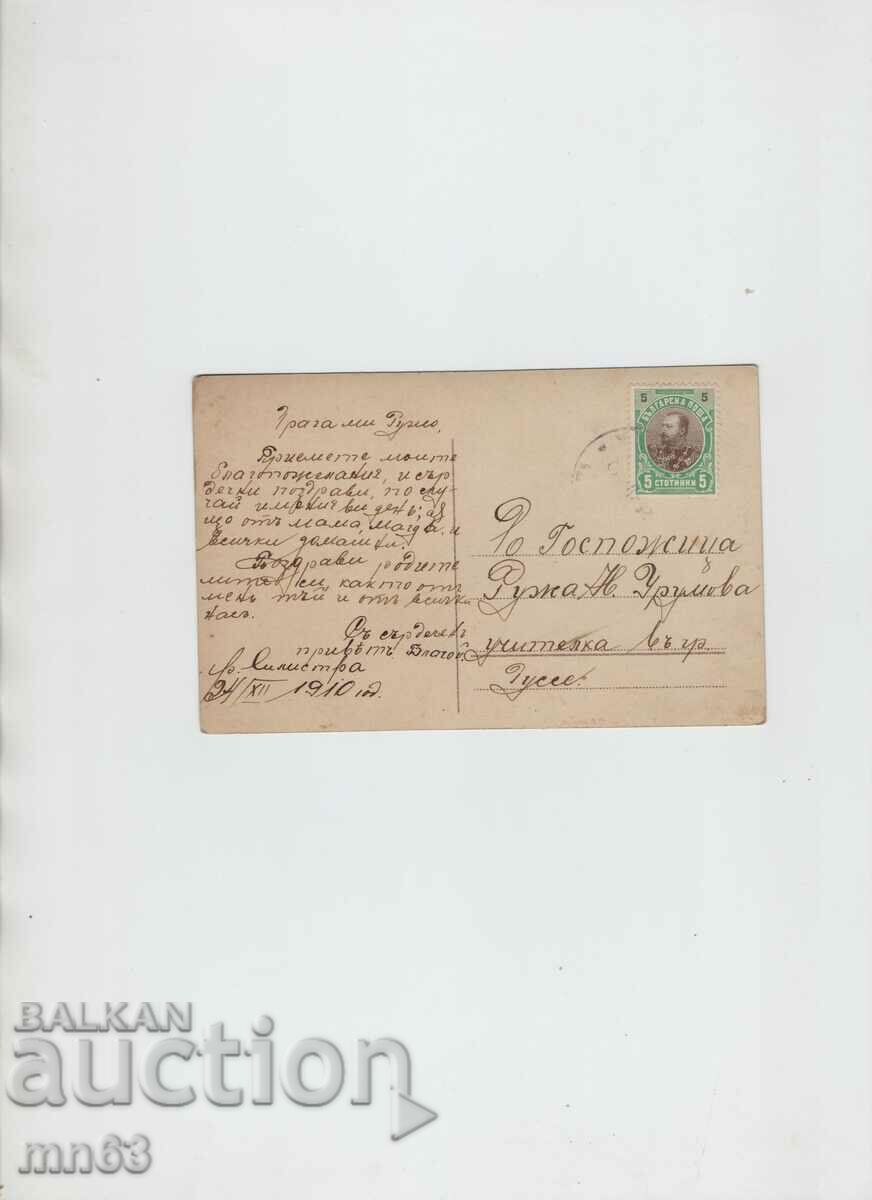 Драга ми Ружо,
Приемете моите
благопожелания, и сър
дечни поздрави, по слу-
чай имения ви день;
що отъ мама, Магда и
всички домашни.
Поздрави родите
ли си, както отъ
мень тъй и отъ всички
насъ.
Съ сърдеченъ
приветъ Благой.
гр. Силистра
24/XII 1910 год.
БЪЛГАРСКА ПОЩА
5 5
5 СТОТИНКИ 5
Госпожица
Ружа Н. Урумова
учителка въ гр.
Руссе.
BALKAN
auction
mn63